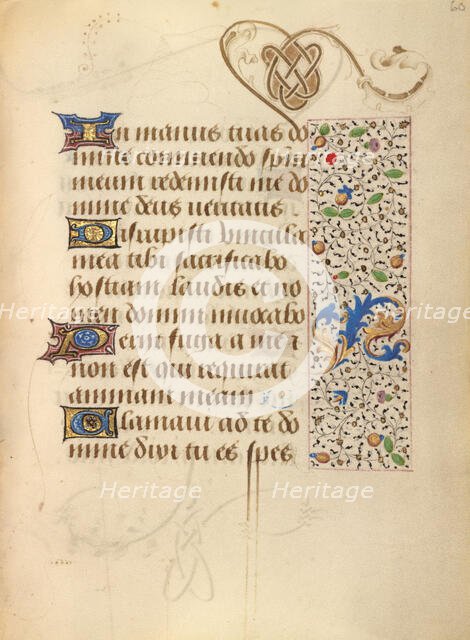 60
In manus tuas do
mine commendo
meum redemisti me do
mine deus ueritatis
Disrupisti uincula
mea tibi sacrificabo
hostiam laudis et no
men domini inuocabo
Periit fuga a me et
non est qui requirat
animam meam
Clamaui ad te do
mine dixi tu es spes
Heritage Heritage
Heritage Heritage Heritage
Heritage Heritage